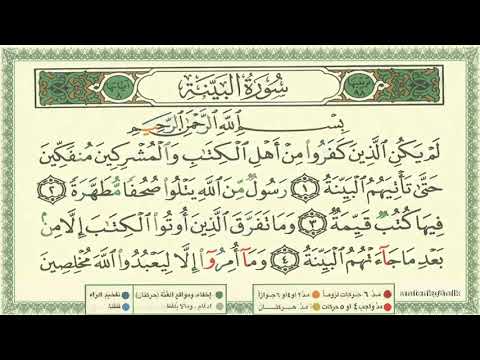 سُورَةُ البَيِّنَةِ
بِسْمِ ٱللَّهِ ٱلرَّحْمَٰنِ ٱلرَّحِيمِ
لَمْ يَكُنِ ٱلَّذِينَ كَفَرُوا۟ مِنْ أَهْلِ ٱلْكِتَٰبِ وَٱلْمُشْرِكِينَ مُنفَكِّينَ
حَتَّىٰ تَأْتِيَهُمُ ٱلْبَيِّنَةُ ١ رَسُولٌ مِّنَ ٱللَّهِ يَتْلُوا۟ صُحُفًا مُّطَهَّرَةً ٢
فِيهَا كُتُبٌ قَيِّمَةٌ ٣ وَمَا تَفَرَّقَ ٱلَّذِينَ أُوتُوا۟ ٱلْكِتَٰبَ إِلَّا مِنۢ
بَعْدِ مَا جَآءَتْهُمُ ٱلْبَيِّنَةُ ٤ وَمَآ أُمِرُوٓا۟ إِلَّا لِيَعْبُدُوا۟ ٱللَّهَ مُخْلِصِينَ
مدّ ٦ حركات لزوماً مدّ ٢ أو ٤ أو ٦ جوازاً إخفاء، ومواقع الغُنَّة (حركتان) تفخيم الراء
مدّ واجب ٤ أو ٥ حركات مدّ حركتان إدغام، وما لا يُلفظ قلقلة